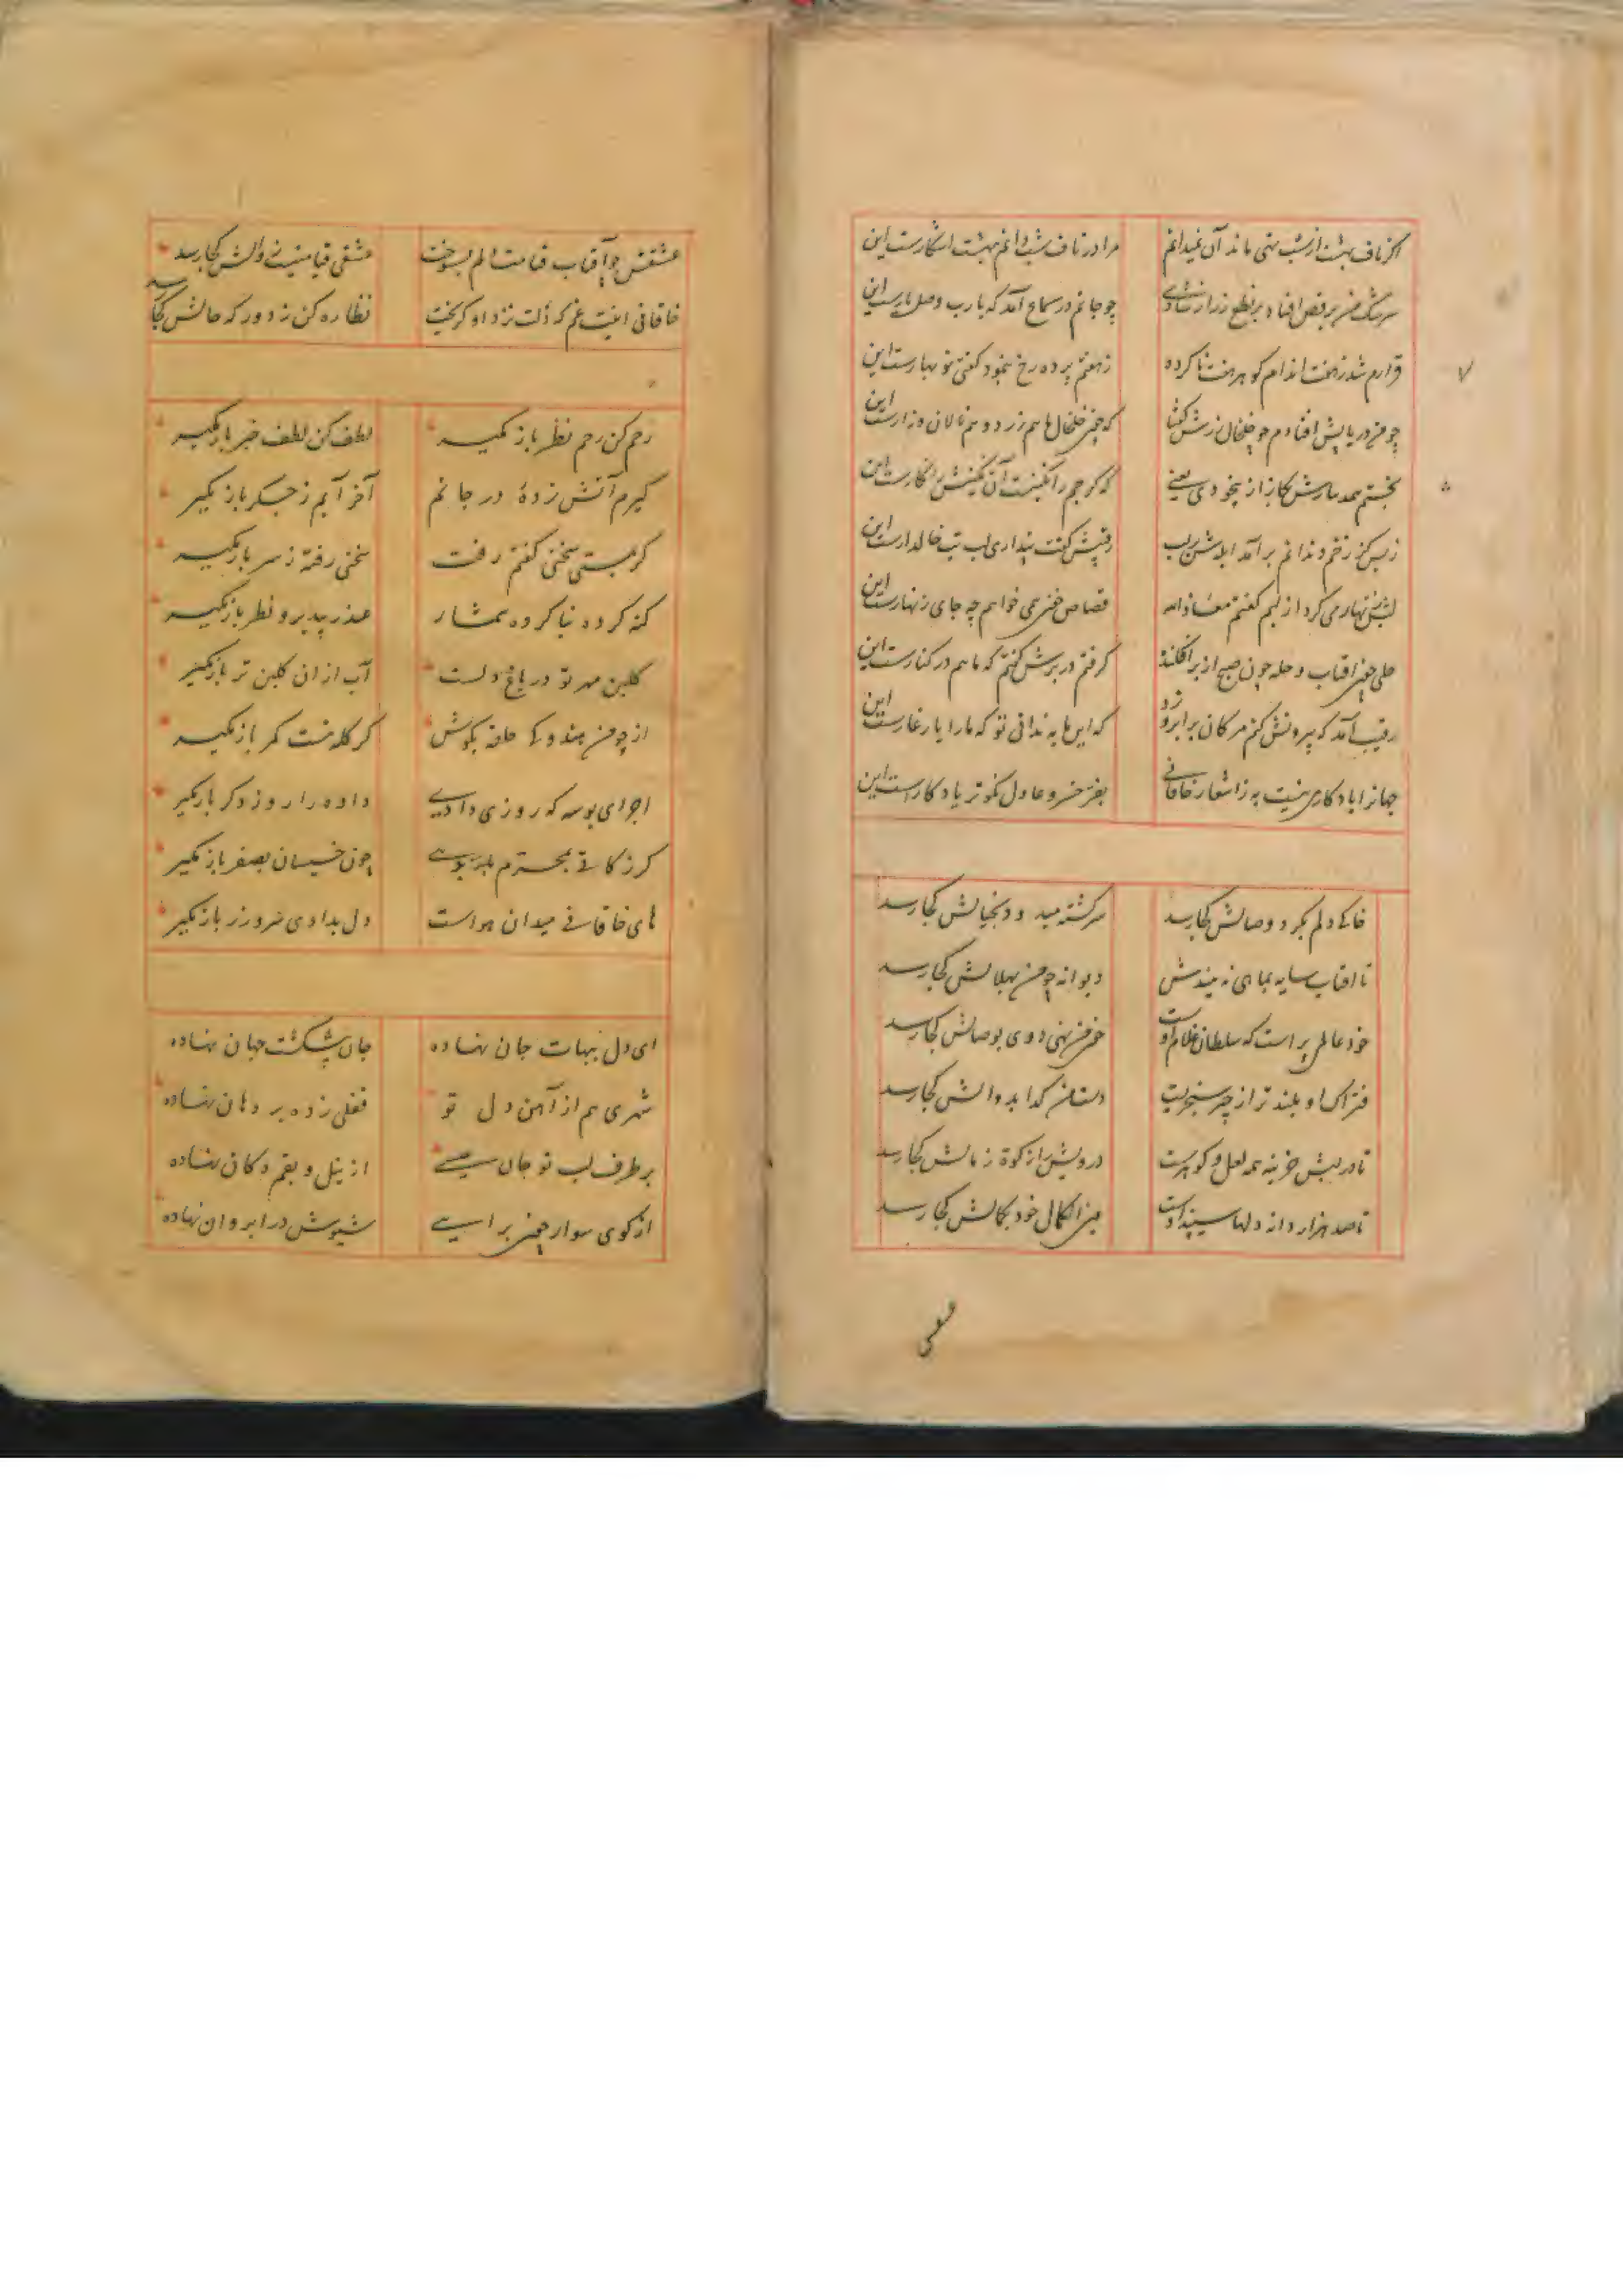 اگر ناف بهشت از شب تهی ماند آن نمیدانم مرا در ناف شب دانم بهشت آشکارست این
سرشک من برقص افتاد بر نطع زر از شادی چو جانم در سماع آمد که یارب وصل یارست این
قرارم شد ز هفت اندام کو هر هفت نا کرده ز هفتم پرده رخ بنمود گفتی نو بهارست این
چو من در پایش افتادم چو خلخال زرش گفتا که چون خلخال ما هم زرد و هم نالان و زارست این
بخستم همه از بیخودی یعنی که گر جم را نگینست آن نگینش را نگارست این
ز بس کز زخم دندانم بر آمد آبله ش بر لب رقیبش گفت پنداری لب تب خاله دارست این
لبش زنهار می کرد از لبم گفتم معاذالله قصاص خون همی خواهم چه جای زنهارست این
حلی چون آفتاب و حله چون صبح از بر افکنده گرفتم در برش گفتم که ماهم در کنارست این
رقیب آمد که بیرونش کنم مژگان بر ابرو زد که این ما به ندانی تو که ما را یار غارست این
جهانرا یادگاری نیست به ز اشعار خاقانی بفر خسرو عادل نکوتر یادگارست این
خاکی دلم بگرد وصالش کجا رسد سرگشته میدود بخیالش کجا رسد
تا آفتاب سایه نماید نه بیندش دیوانه چون بهلالش کجا رسد
خود عالمی پر است که سلطان غلام اوست من تهی دوی بوصالش کجا رسد
فتراک او بلند تر از چتر سنجریست دستان گدا بدوالش کجا رسد
تا دربش خزینه همه لعل و گوهرست درویش را زکوة ز مالش کجا رسد
تا صد هزار دانه دلها سپند اوست عین الکمال خود بکمالش کجا رسد
عشقش چو آفتاب قیامت دلم بسوخت عشقی قیامتیست والش کجا رسد
خاقانی اینت غم که دلت نزد او گریخت نظاره کن ز دور که حالش کجا رسد
رحم کن رحم نظر باز مگیر لطف کن لطف خبر باز مگیر
گیرم آتش زده در جانم آخر آبم ز جگر باز مگیر
گر بمستی سخنی گفتم رفت سخنی رفته ز سر باز مگیر
گنه کرده نا کرده شمار عذر بپذیر و نظر باز مگیر
گلبن مهر تو در باغ دلست آب از آن گلبن تر باز مگیر
از چو من هندوکی حلقه بگوش گر کله نیست کمر باز مگیر
اجرای بوسه که روزی دادی داده را روز دگر باز مگیر
گر زکاتی بمحرم چون خسیسان بصفر باز مگیر
های خاقانی میدان هواست دل بدادی ز باز مگیر
ای دل بنهات جان نهاده جان پیشکشت جهان نهاده
شهری هم از آهن دل تو قفلی زده بر دهان نهاده
بر طرف لب تو جان عیسی از نیل و بقم دکان نهاده
از کوی سوار چون بر آیی در ابروان نهاده